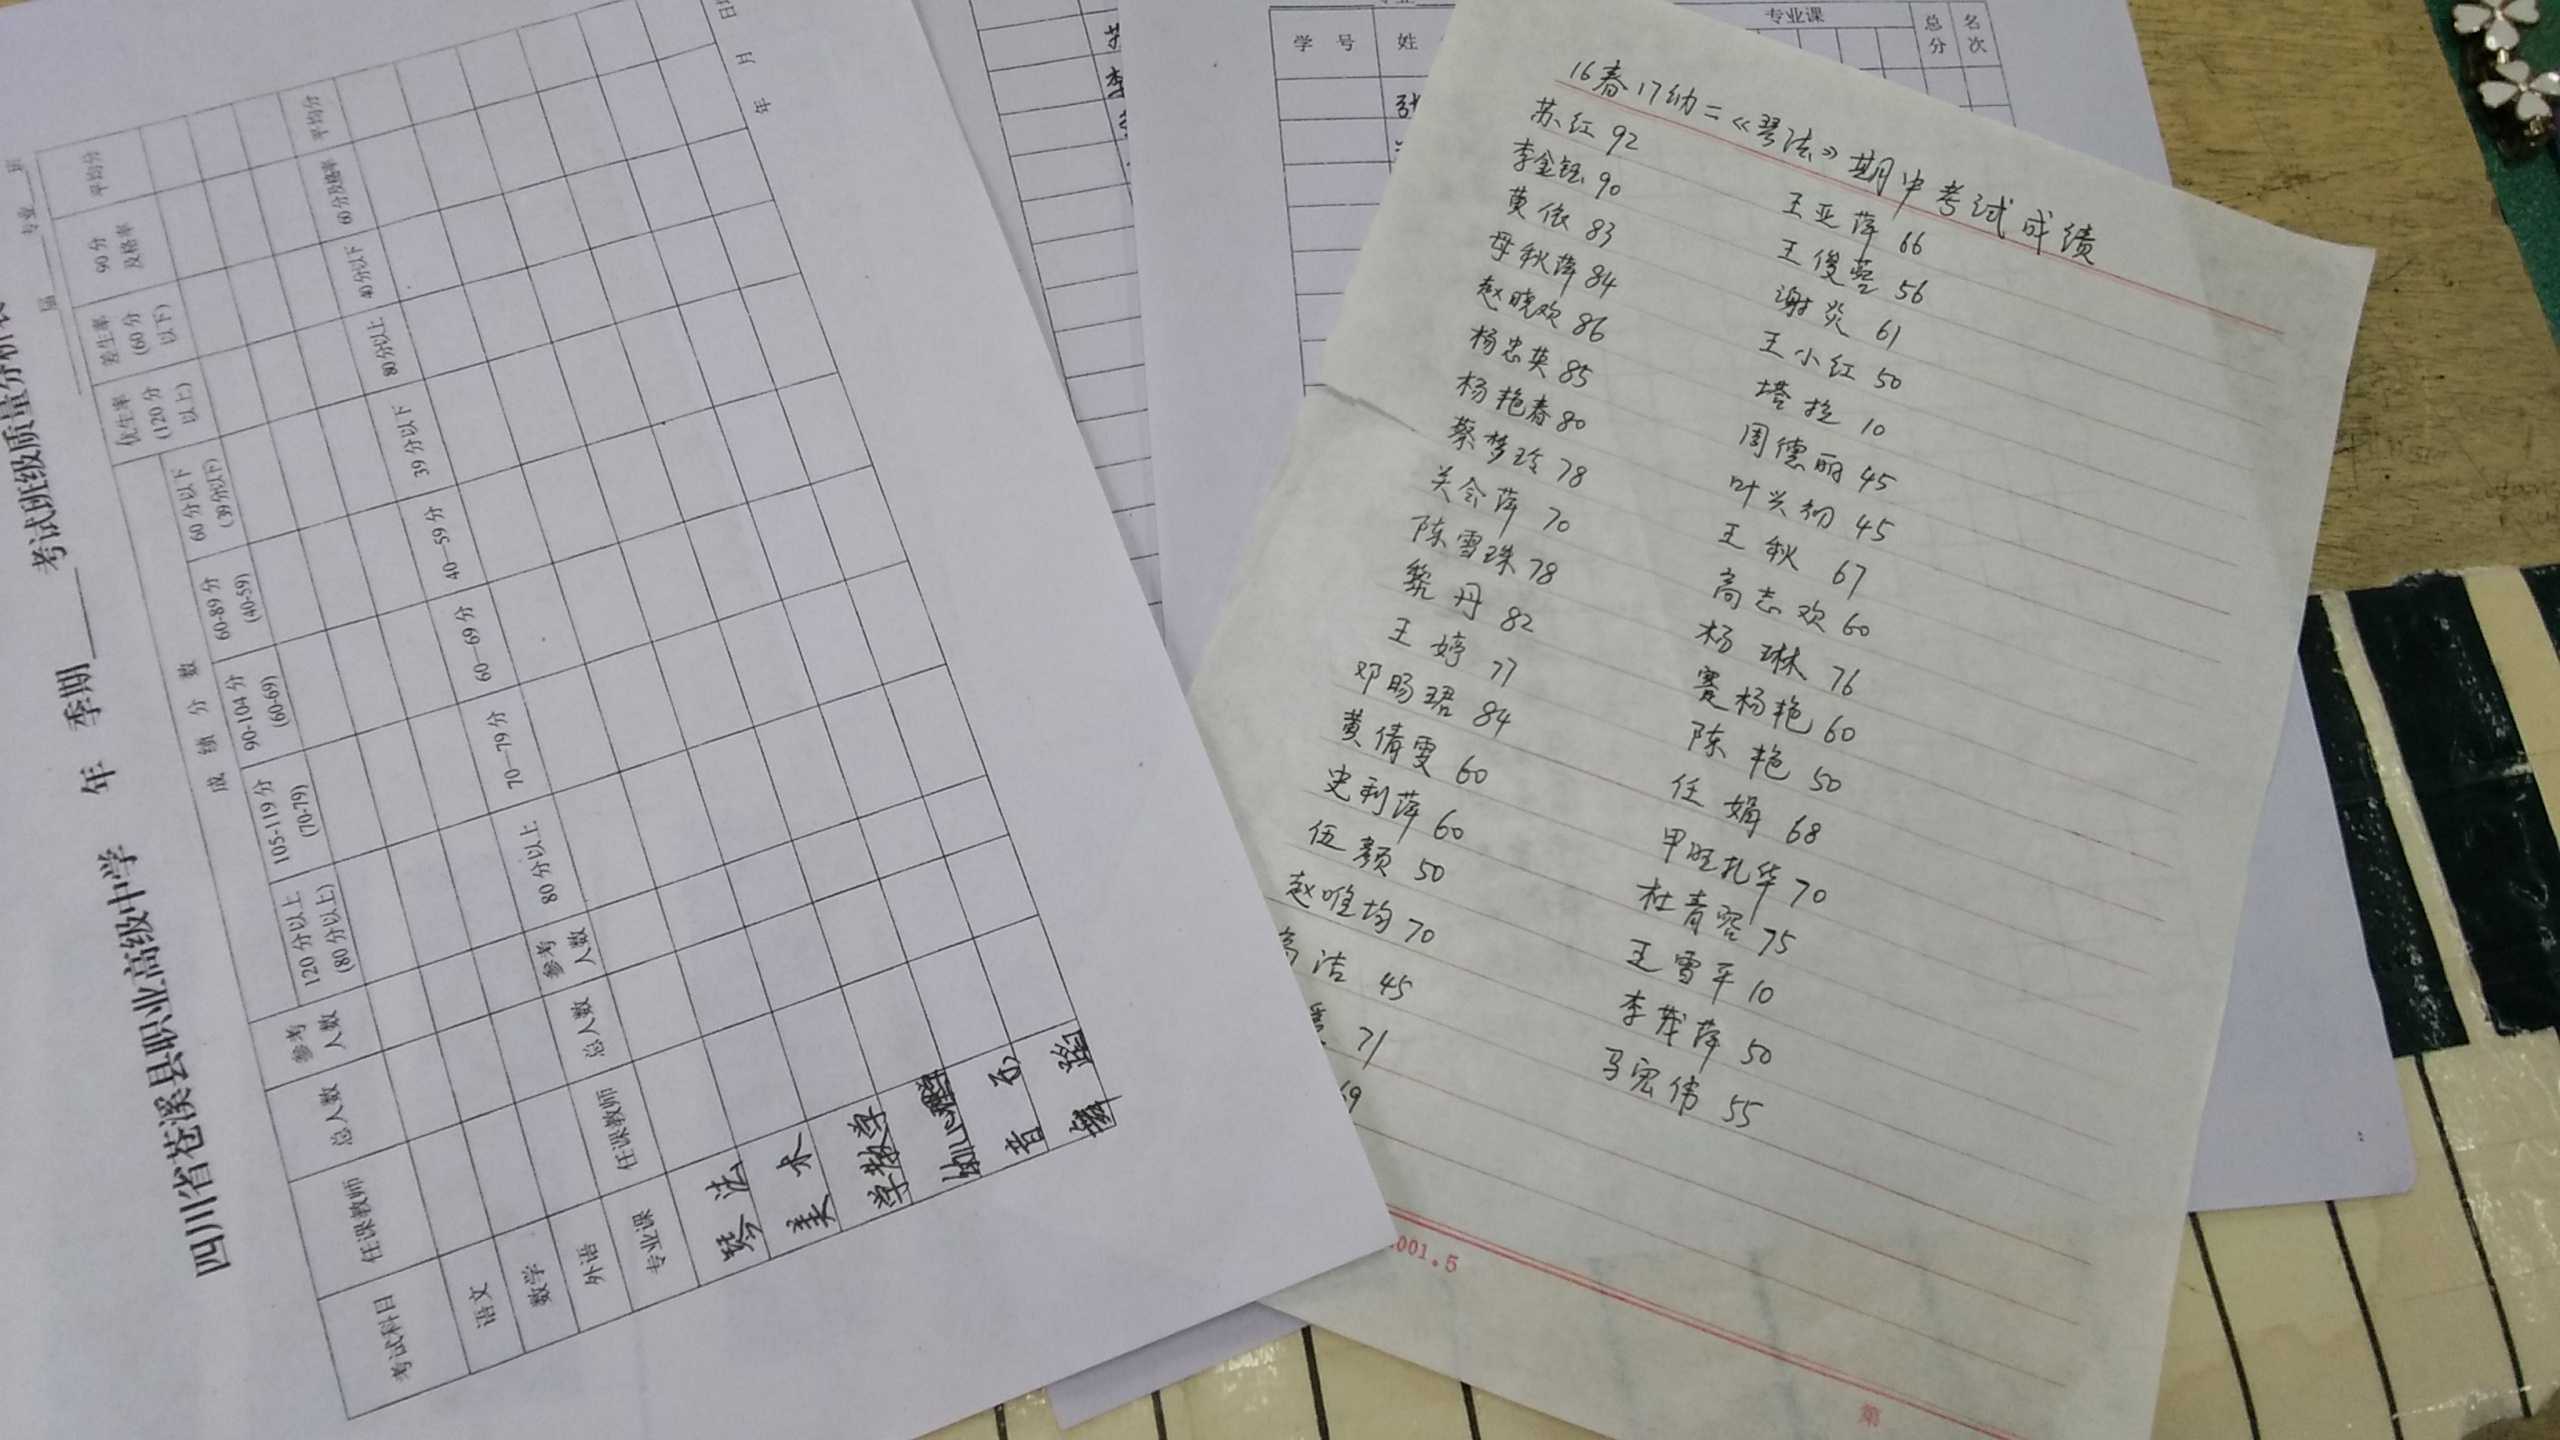 四川省苍溪县职业高级中学 年 季期 考试班级质量分析表
届 专业 班
考试科目 任课教师 总人数 参考人数 成绩分数 优生率(120分以上) 差生率(60分以下) 90分及格率 平均分
120分以上(80分以上) 105-119分(70-79) 90-104分(60-69) 60-89分(40-59) 60分以下(39分以下)
语文
数学
外语
专业课 任课教师 总人数 参考人数 80分以上 70—79分 60—69分 40—59分 39分以下 80分以上 40分以下 60分及格率 平均分
琴法
美术
学教学
幼心
音乐
舞蹈
年 月
学 号 姓 专业课 总分 名次
16春17幼二《琴法》期中考试成绩
苏红 92
李金钰 90
黄依 83
母秋萍 84
赵晓欢 86
杨忠英 85
杨艳春 80
蔡梦玲 78
关会萍 70
陈雪珠 78
黎丹 82
王婷 77
邓旸珺 84
黄倩雯 60
史利萍 60
伍颜 50
赵唯均 70
洁 45
71
69
王亚萍 66
王俊蓉 56
谢炎 61
王小红 50
塔拉 10
周德丽 45
叶兴初 45
王秋 67
高志欢 60
杨琳 76
蹇杨艳 60
陈艳 50
任娟 68
甲旺扎华 70
杜青容 75
王雪平 10
李茂萍 50
马宏伟 55
001.5
第